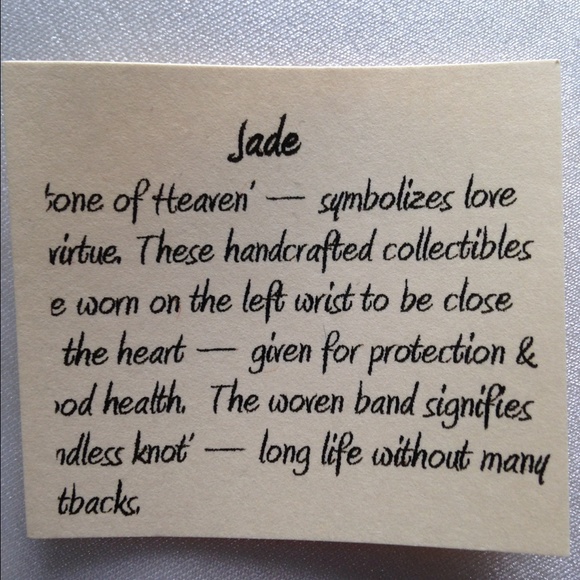 Jade
tone of Heaven' — symbolizes love
virtue. These handcrafted collectibles
e worn on the left wrist to be close
the heart — given for protection &
od health. The woven band signifies
ndless knot' — long life without many
tbacks.